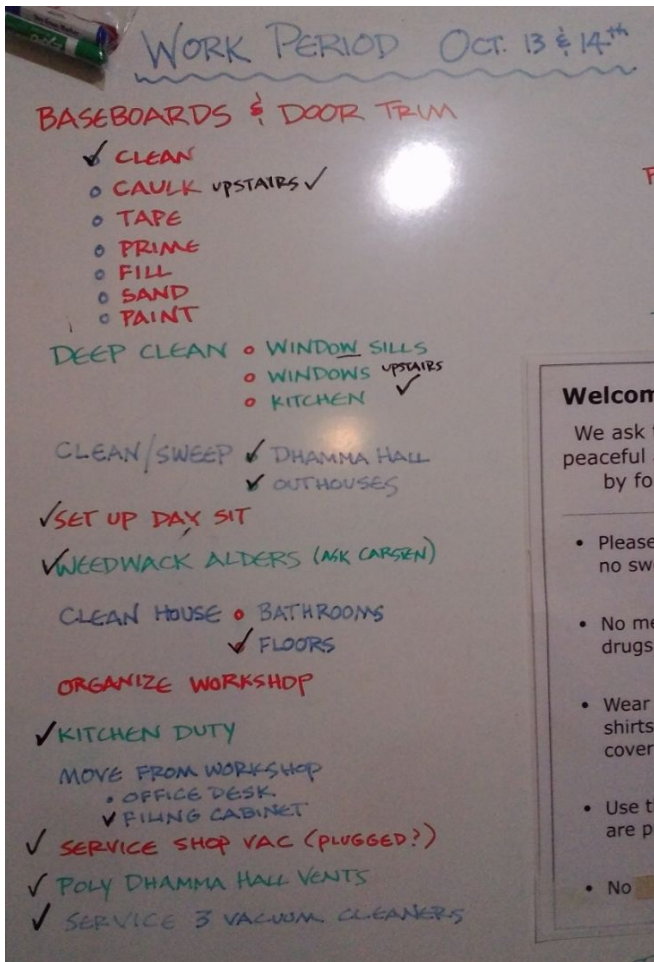 WORK PERIOD OCT. 13 & 14th
BASEBOARDS & DOOR TRIM
✓ CLEAN
○ CAULK UPSTAIRS ✓
○ TAPE
○ PRIME
○ FILL
○ SAND
○ PAINT
DEEP CLEAN ○ WINDOW SILLS
○ WINDOWS UPSTAIRS ✓
○ KITCHEN
CLEAN/SWEEP ✓ DHAMMA HALL
✓ OUTHOUSES
✓ SET UP DAY SIT
✓ WEEDWACK ALDERS (ASK CARSTEN)
CLEAN HOUSE ○ BATHROOMS
✓ FLOORS
ORGANIZE WORKSHOP
✓ KITCHEN DUTY
MOVE FROM WORKSHOP
• OFFICE DESK
✓ FILING CABINET
✓ SERVICE SHOP VAC (PLUGGED?)
✓ POLY DHAMMA HALL VENTS
✓ SERVICE 3 VACUUM CLEANERS
Welcom
We ask
peaceful
by fo
• Please
no sw
• No me
drugs
• Wear
shirts
cover
• Use t
are p
• No